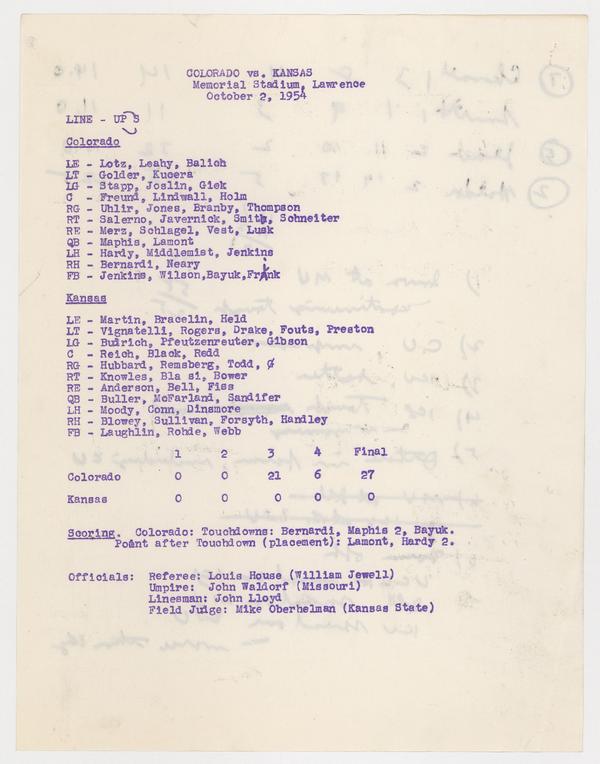 COLORADO vs. KANSAS
Memorial Stadium, Lawrence
October 2, 1954
LINE - UPS
Colorado
LE - Lotz, Leahy, Balich
LT - Golder, Kucera
LG - Stapp, Joslin, Giek
C - Freund, Lindwall, Holm
RG - Uhlir, Jones, Branby, Thompson
RT - Salerno, Javernick, Smith, Schneiter
RE - Merz, Schlagel, Vest, Lusk
QB - Maphis, Lamont
LH - Hardy, Middlemist, Jenkins
RH - Bernardi, Neary
FB - Jenkins, Wilson,Bayuk,Frank
Kansas
LE - Martin, Bracelin, Held
LT - Vignatelli, Rogers, Drake, Fouts, Preston
LG - Budrich, Pfeutzenreuter, Gibson
C - Reich, Black, Redd
RG - Hubbard, Remsberg, Todd,
RT - Knowles, Bla si, Bower
RE - Anderson, Bell, Fiss
QB - Buller, McFarland, Sandifer
LH - Moody, Conn, Dinsmore
RH - Blowey, Sullivan, Forsyth, Handley
FB - Laughlin, Rohde, Webb
1 2 3 4 Final
Colorado 0 0 21 6 27
Kansas 0 0 0 0 0
Scoring. Colorado: Touchdowns: Bernardi, Maphis 2, Bayuk.
Point after Touchdown (placement): Lamont, Hardy 2.
Officials: Referee: Louis House (William Jewell)
Umpire: John Waldorf (Missouri)
Linesman: John Lloyd
Field Judge: Mike Oberhelman (Kansas State)